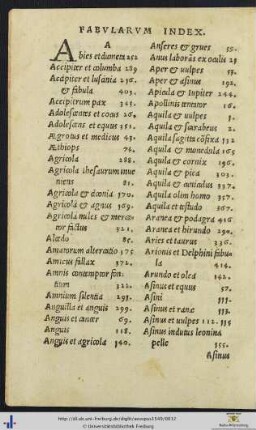 FABVLARVM INDEX.
A
Abies et dumeta 252
Accipiter et columba 289
Accipiter et luscinia 236.
& fibula 403.
Accipitrum pax 323.
Adolescentes et cocus 262.
Adolescens et equus 351.
Aegrotus et medicus 43.
Aethiops 74.
Agricola 288.
Agricola thesaurum inue
niens 81.
Agricola & 370.
Agricola & agnus 369.
Agricola miles & merca-
tor fictus 321.
Alcedo 85.
Amatorum alteratio 375
Amicus fallax 372.
Amnis contemptor fon-
tium 322.
Amnium silentia 295.
Anguilla et anguis 299.
Anguis et cancer 69.
Anguis 118.
Anguis et agricola 340.
Anseres & grues 55.
Anus laborās ex oculis 23
Aper & vulpes 57.
Aper & asinus 192.
Apicula & Iupiter 244.
Apollinis tentator 16.
Aquila & vulpes 5.
Aquila & scarabeus 2.
Aquila sagitta cōfixa 332
Aquila & monedula 165
Aquila & cornix 196.
Aquila & pica 303.
Aquila & auiculae 337.
Aquila olim homo 357.
Aquila et testudo 367.
Aranea & podagra 416
Aranea et hirundo 290.
Aries et taurus 336.
Arionis et Delphini fabu-
la 414.
Arundo et olea 142.
Asinus et equus 57.
Asini 333.
Asinus et ranae 333.
Asinus et vulpes 112. 335
Asinus indutus leonina
pelle 355.
Asinus
http://dl.ub.uni-freiburg.de/diglit/aesopus1549/0037
© Universitätsbibliothek Freiburg